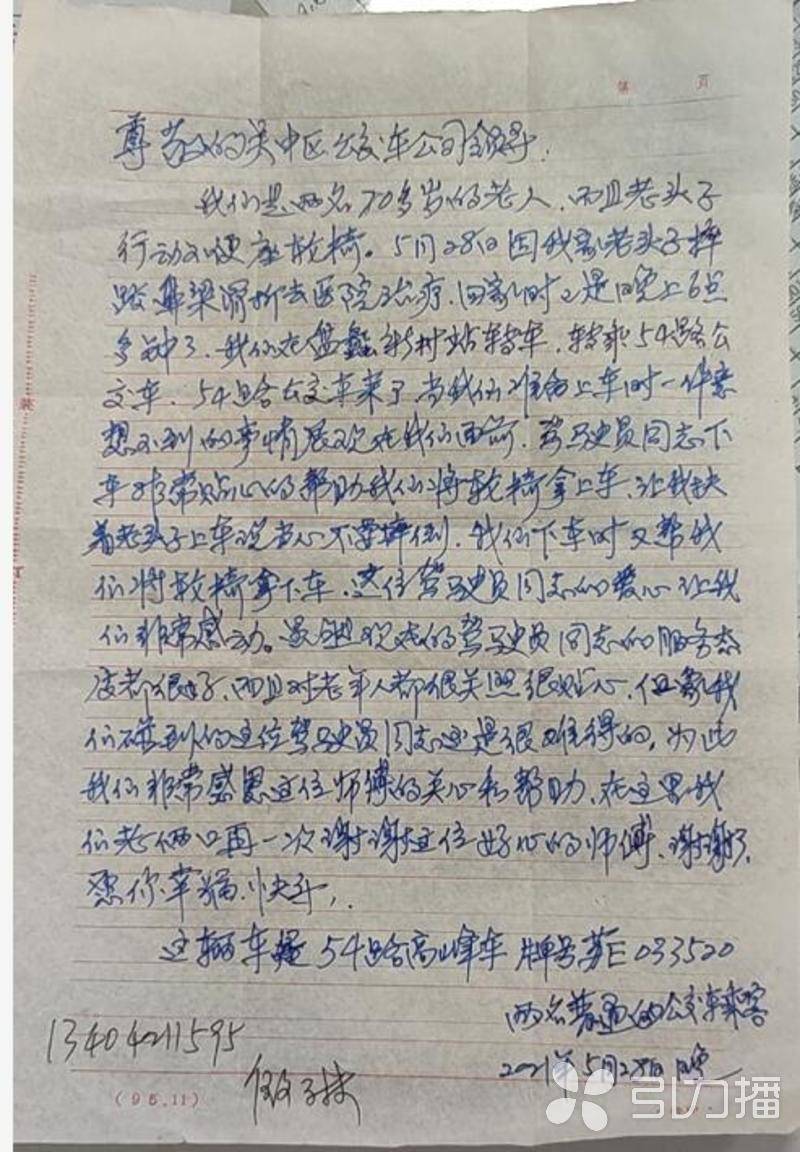 第 页
尊敬的吴中区公交车公司领导：
我们是两名70多岁的老人，而且老头子
行动不便座轮椅。5月28日因我家老头子摔
跤鼻梁骨折去医院治疗，回家时已是晚上6点
多钟了，我们在盘蠡新村站转车，转乘54路公
交车，54路公交车来了当我们准备上车时一件意
想不到的事情展现在我们面前，驾驶员同志下
车非常贴心的帮助我们将轮椅拿上车，让我扶
着老头子上车说当心不要摔倒，我们下车时又帮我
们将轮椅拿下车，这位驾驶员同志的爱心让我
们非常感动。虽然现在的驾驶员同志的服务态
度都很好，而且对老年人都很关照很贴心，但象我
们碰到的这位驾驶员同志还是很难得的，为此
我们非常感恩这位师傅的关心和帮助，在这里我
们老俩口再一次谢谢这位好心的师傅，谢谢了，
愿你幸福、快乐，
这辆车是54路高峰车 牌号苏E033520
两名普通的公交车乘客
2021年5月28日晚
13404211595
(95.11)
引力播
装